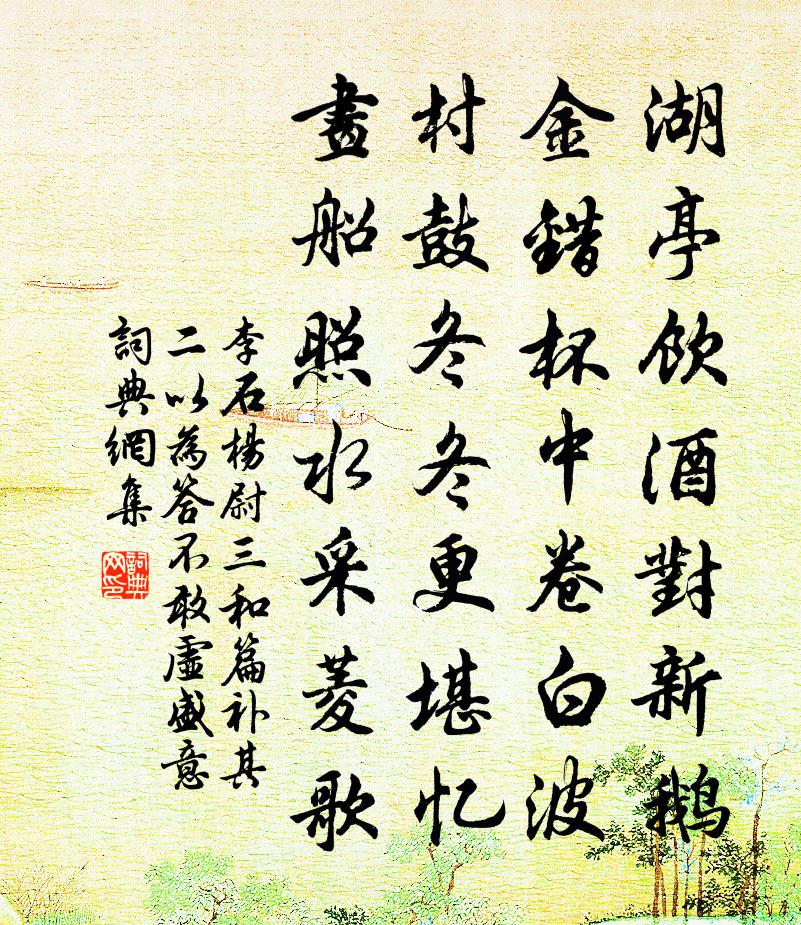 湖亭飲酒對新鵝
金錯杯中卷白波
村鼓冬冬更堪忆
畫船照水采菱歌
李石楊尉三和篇补其
二以為答不敢虛盛意
詞典網集
詞典網印